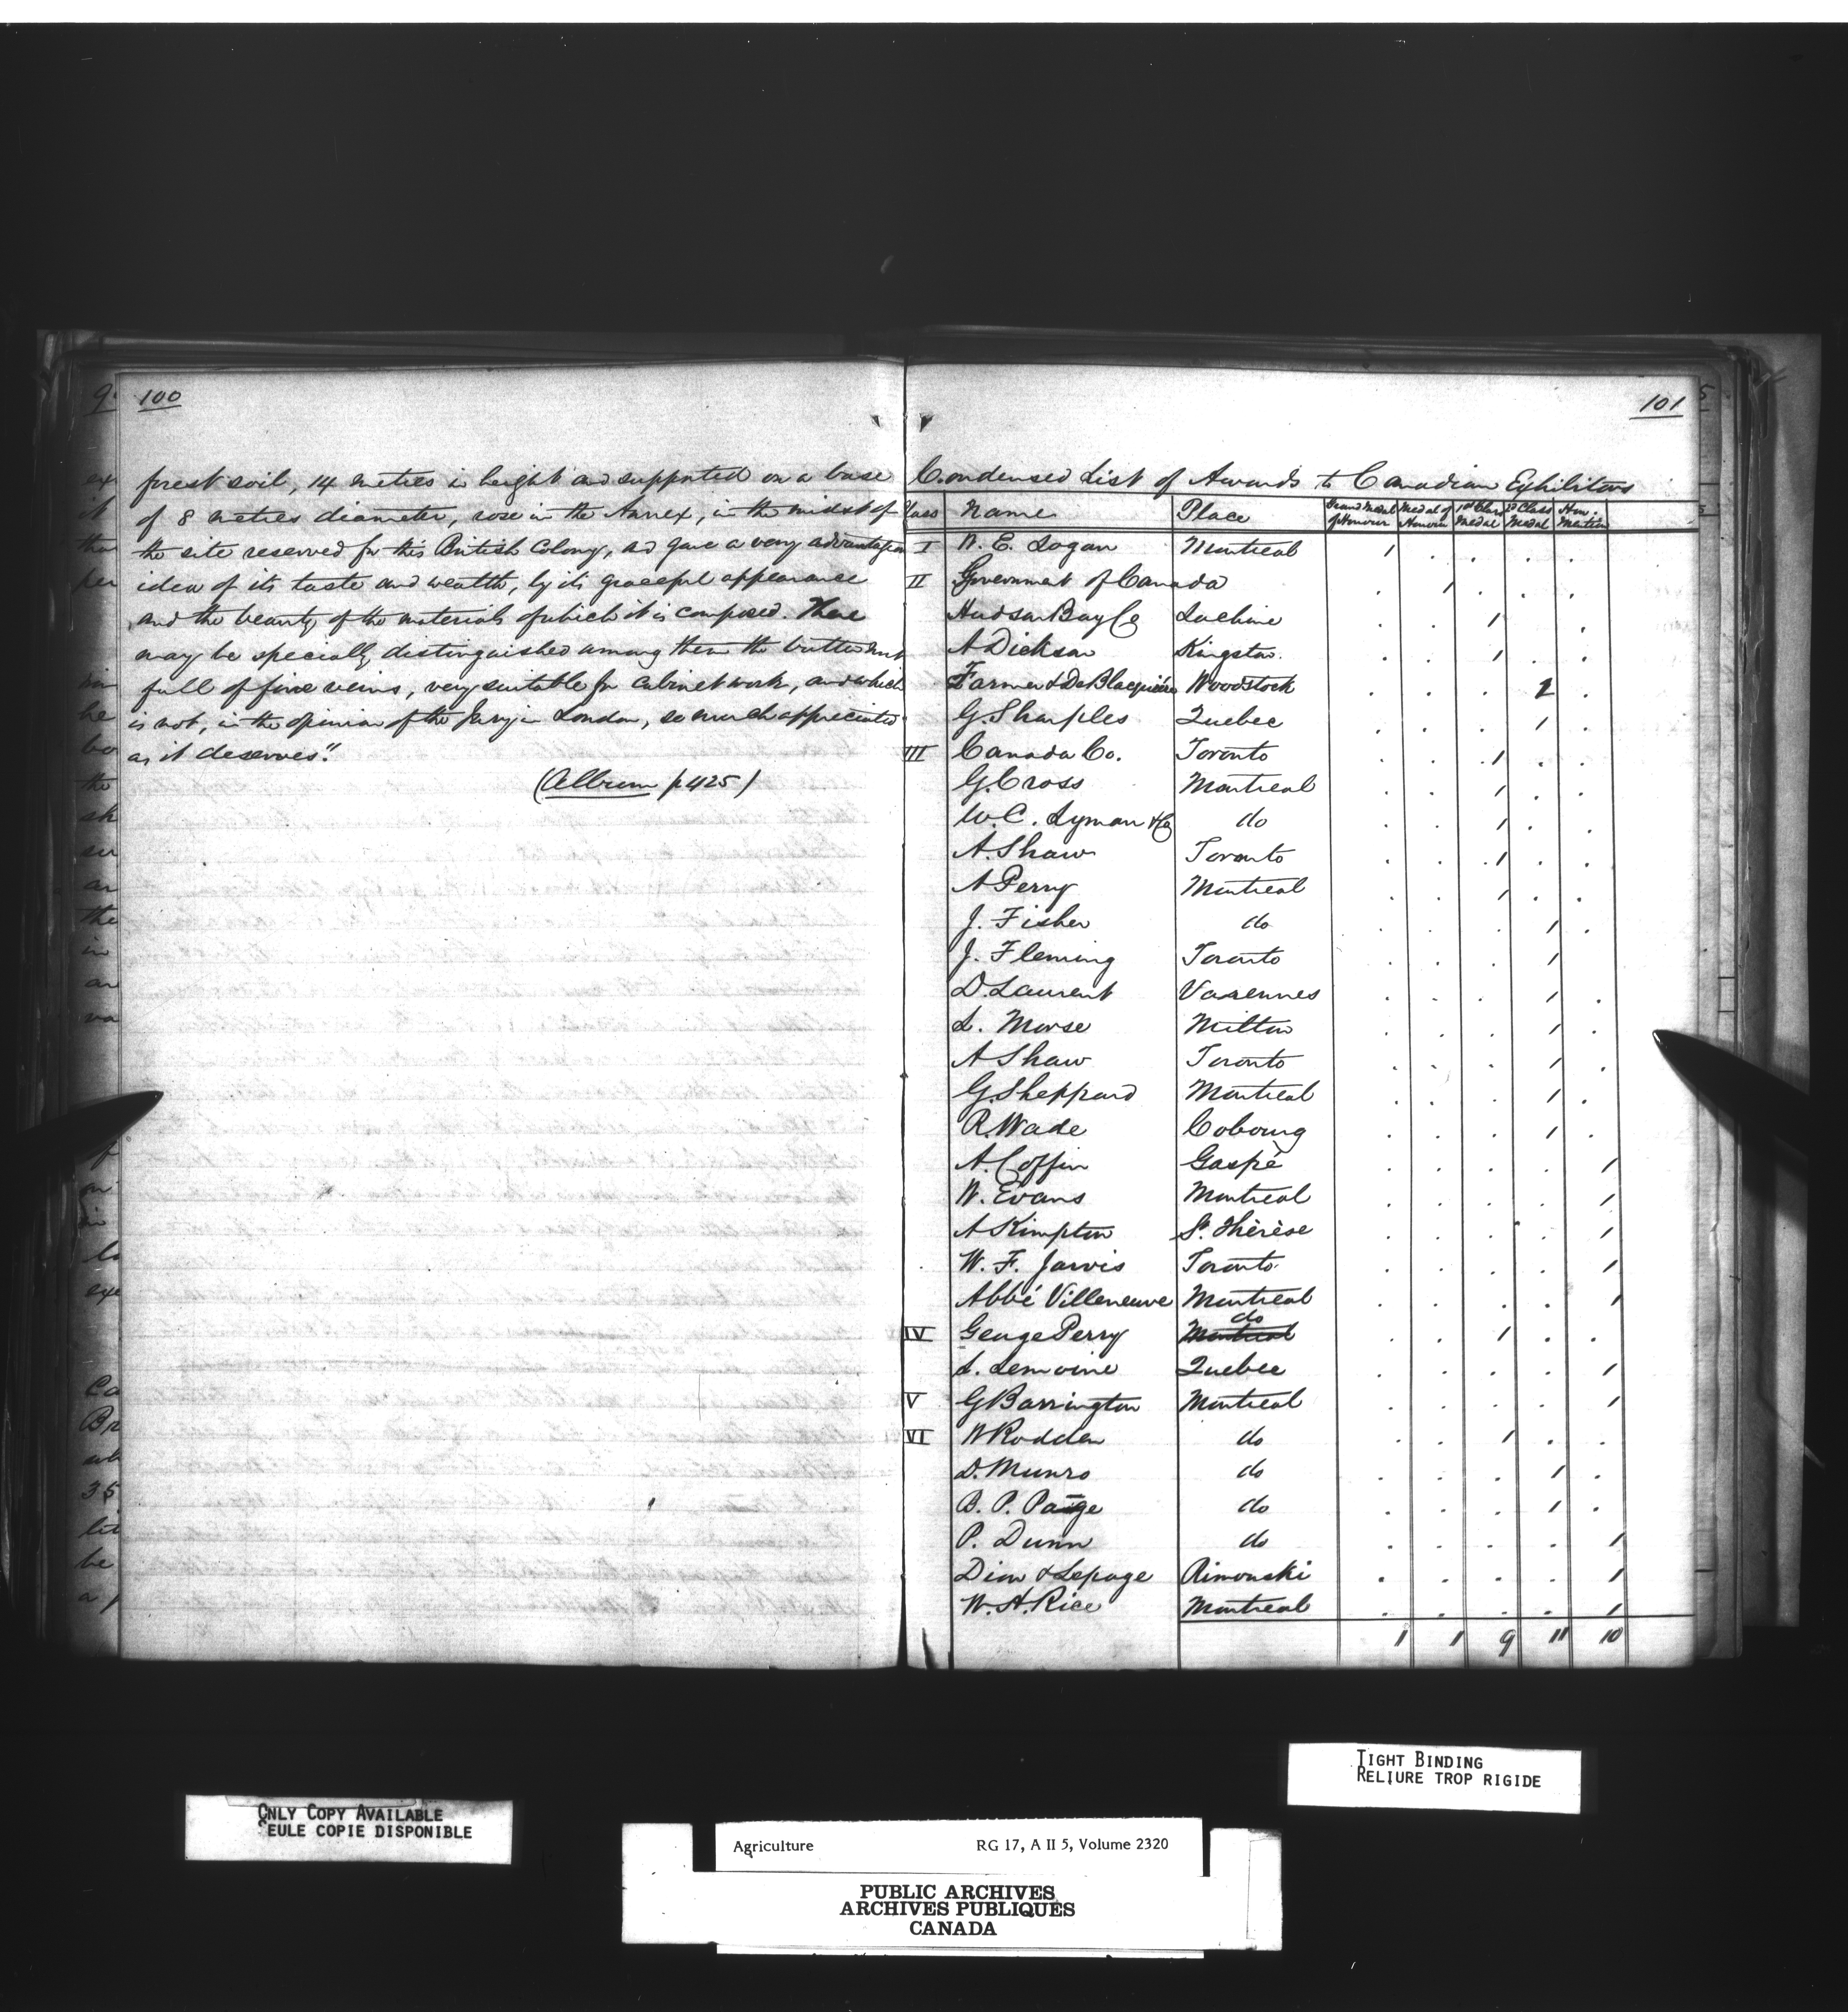 100
forest soil, 14 metres in height and supported on a base
of 8 metres diameter, rose in the Annex, in the midst of
the site reserved for this British Colony, and gave a very advantageous
idea of its taste and wealth, by its graceful appearance
and the beauty of the materials of which it is composed. There
may be specially distinguished among them the butternut
full of fine veins, very suitable for cabinet work, and which
is not, in the opinion of the Jury in London, so much appreciated
as it deserves."
(Album p 425)
101
Condensed List of Awards to Canadian Exhibitors
Class Name Place Grand Medal of Honour Medal of Honour 1st Class Medal 2d Class Medal Hon. Mention
I W. E. Logan Montreal 1 . . . .
II Government of Canada . 1 . . .
Hudson Bay Co Lachine . . 1 .
A Dickson Kingston . . 1 . .
Farmer & De Blaquière Woodstock . . . 2 .
G. Sharples Quebec . . . 1 .
III Canada Co. Toronto . . 1 . .
G. Cross Montreal . . 1 . .
W. C. Lyman & Co do . . 1 . .
A. Shaw Toronto . . 1 . .
A Perry Montreal . . 1 . .
J. Fisher do . . . 1 .
J. Fleming Toronto . . . 1
D. Laurent Varennes . . . 1 .
L. Morse Milton . . . 1 .
A Shaw Toronto . . . 1 .
G. Sheppard Montreal . . . 1 .
R. Wade Cobourg . . . 1 .
A. Coffin Gaspè . . . . 1
W. Evans Montreal . . . . 1
A Kimpton St. Thèrèse . . . . 1
W. F. Jarvis Toronto . . . . 1
Abbé Villeneuve Montreal . . . . 1
IV George Perry Montreal do . . 1 . .
L. Lemoine Quebec . . . . 1
V G Barrington Montreal . . . . 1
VI W Rodden do . . 1 . .
D. Munro do . . . 1 .
B. P. Paige do . . . 1 .
P. Dunn do . . . . 1
Dion & Lepage Rimouski . . . . 1
W. H. Rice Montreal . . . . 1
1 1 9 11 10
TIGHT BINDING
RELIURE TROP RIGIDE
ONLY COPY AVAILABLE
SEULE COPIE DISPONIBLE
Agriculture RG 17, A II 5, Volume 2320
PUBLIC ARCHIVES
ARCHIVES PUBLIQUES
CANADA